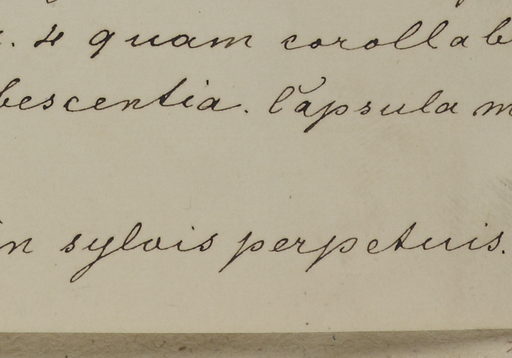 . 4 quam corolla b
bescentia. Capsula m
in sylvis perpetuis.